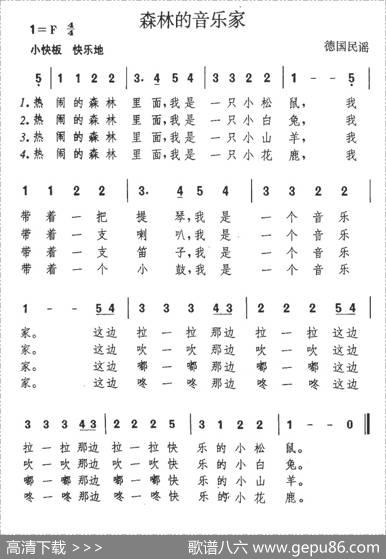 森林的音乐家
1=F 4/4
小快板 快乐地
德国民谣
5 | 1 1 2 2 | 3. 4 5 4 | 3 3 2 2 | 1 - - 5 |
1.热 闹的森林 里面,我是 一只小松 鼠, 我
2.热 闹的森林 里面,我是 一只小白 兔, 我
3.热 闹的森林 里面,我是 一只小山 羊, 我
4.热 闹的森林 里面,我是 一只小花 鹿, 我
1 1 2 2 | 3. 4 5 4 | 3 3 2 2 |
带着一把 提 琴,我是 一个音乐
带着一支 喇 叭,我是 一个音乐
带着一支 笛 子,我是 一个音乐
带着一个 小 鼓,我是 一个音乐
1 - - 5 4 | 3 3 3 4 3 | 2 2 2 5 4 |
家。 这边 拉一拉那边 拉一拉这边
家。 这边 吹一吹那边 吹一吹这边
家。 这边 嘟一嘟那边 嘟一嘟这边
家。 这边 咚一咚那边 咚一咚这边
3 3 3 4 3 | 2 2 2 5 | 3 3 2 2 | 1 - - 0 ‖
拉一拉那边 拉一拉快 乐的小松 鼠。
吹一吹那边 吹一吹快 乐的小白 兔。
嘟一嘟那边 嘟一嘟快 乐的小山 羊。
咚一咚那边 咚一咚快 乐的小花 鹿。
高清下载 >>> 歌谱八六 www.gepu86.com